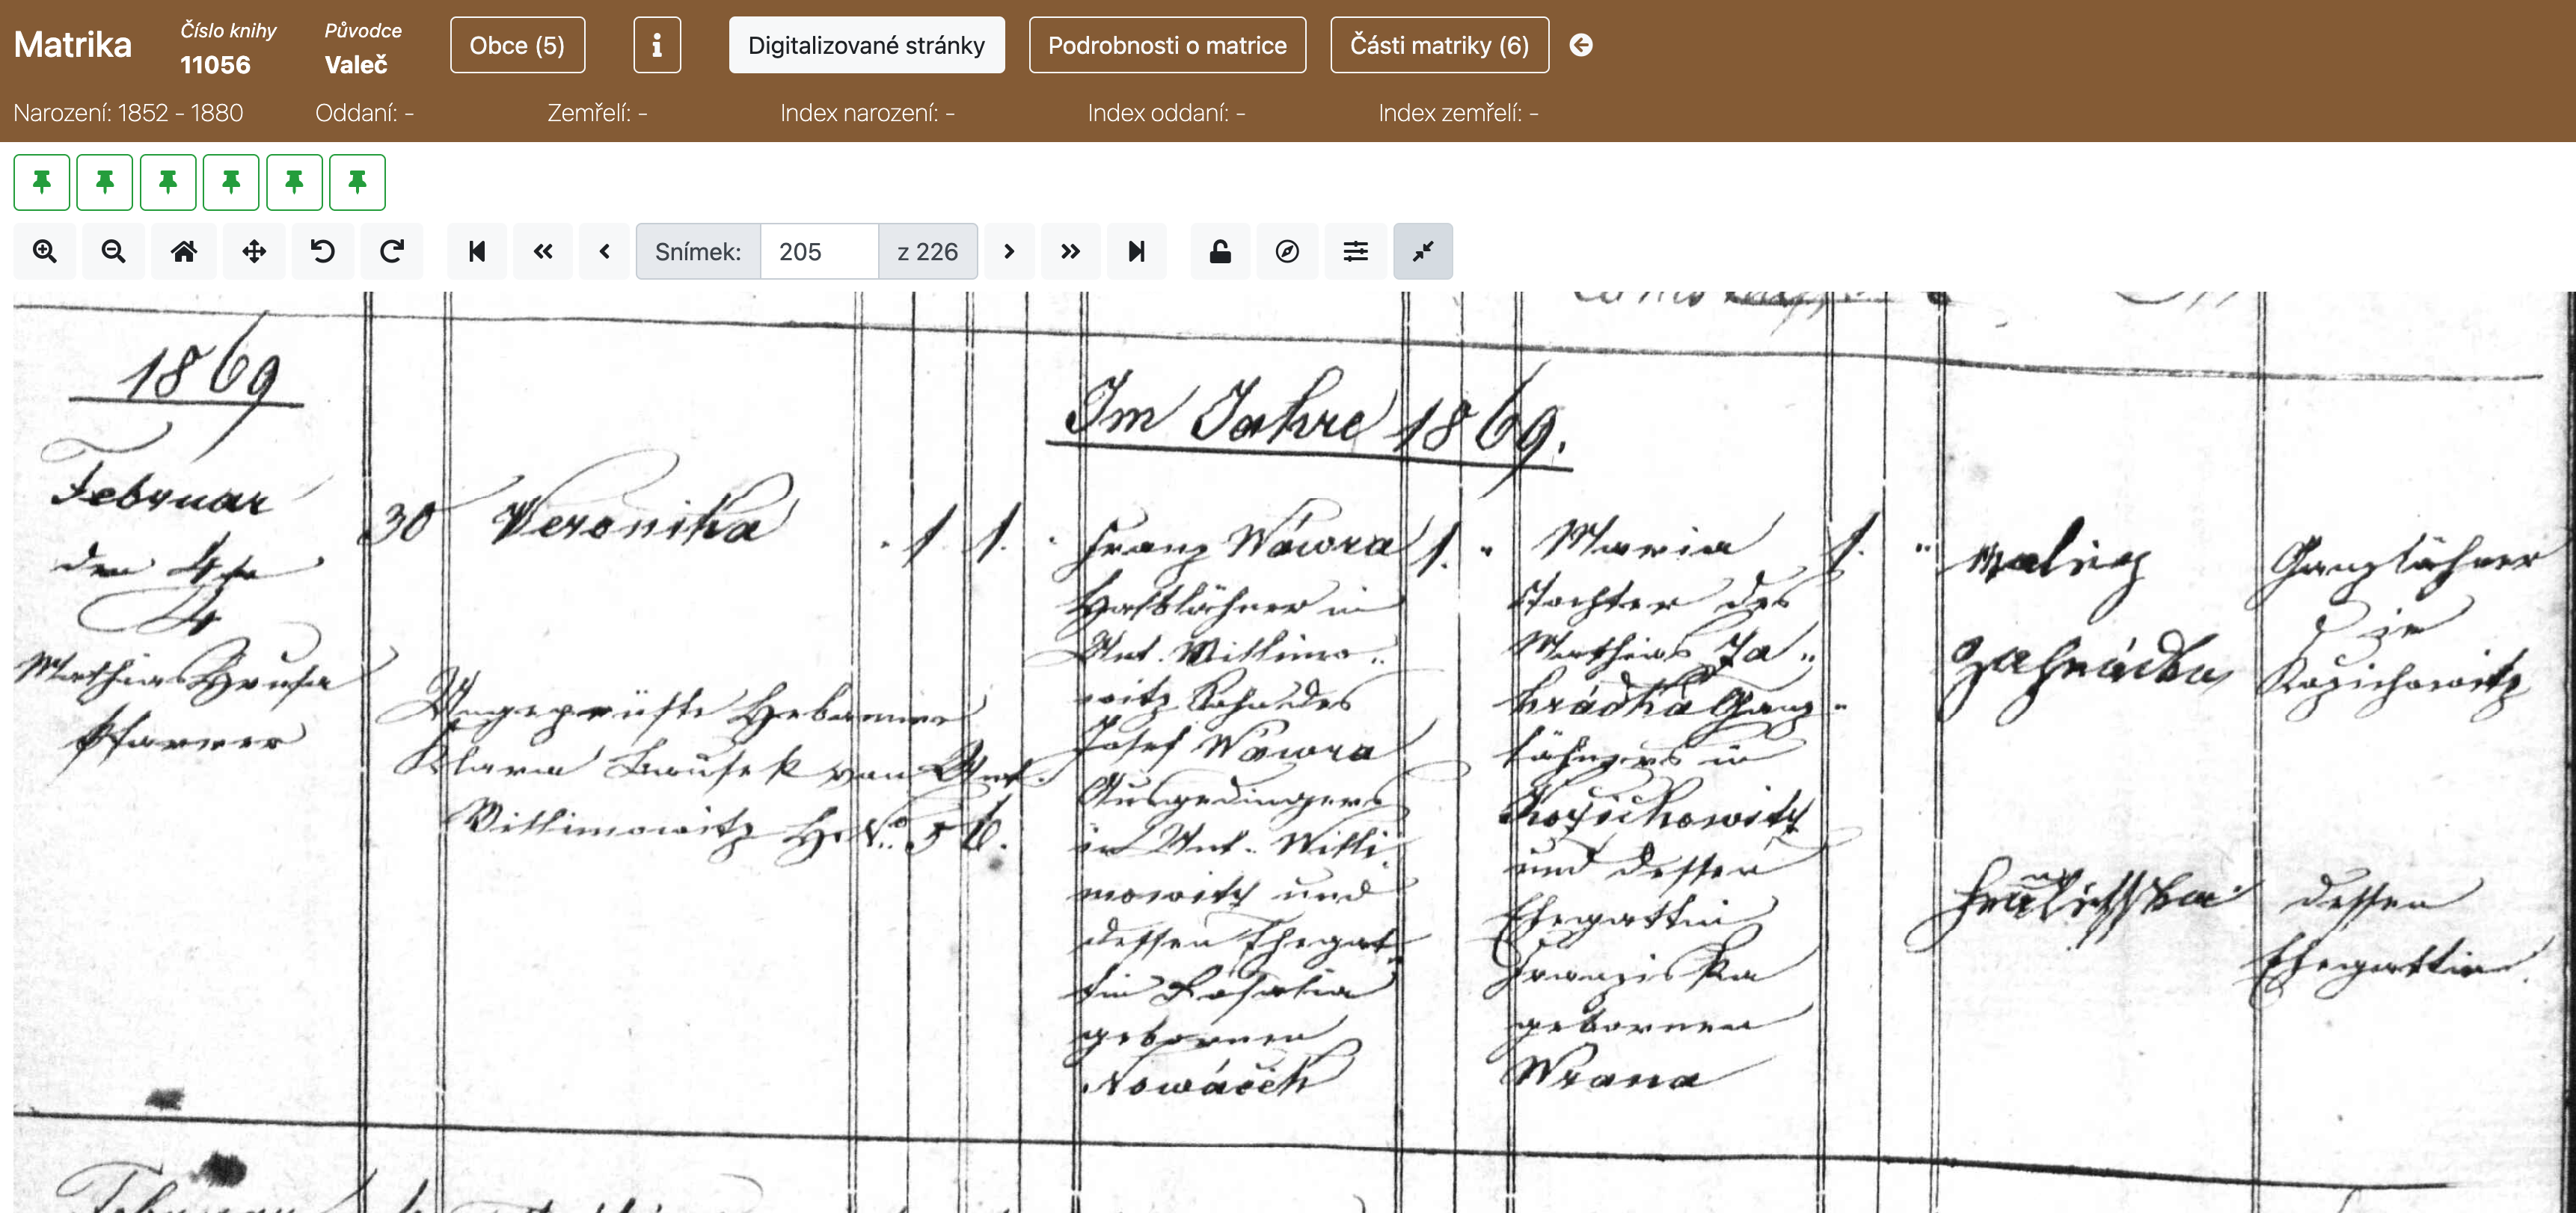 Matrika
Číslo knihy
11056
Původce
Valeč
Obce (5)
Digitalizované stránky
Podrobnosti o matrice
Části matriky (6)
Narození: 1852 - 1880
Oddaní: -
Zemřelí: -
Index narození: -
Index oddaní: -
Index zemřelí: -
Snímek:
205
z 226
1869
Im Jahre 1869.
Februar
den 4ten
4
Mathias Hrusa
Pfarrer
30
Veronika
Ungeprüfte Hebamme
Klara von Unt.
Willimowitz H. No. 56.
1 1.
Franz Wáwra
Halblähner in
Unt. Willimo„
witz Sohn des
Josef Wáwra
Ausgedingers
in Unt. Willi
mowitz und
dessen Ehegat„
tin Rosalia
gebornen
Nowáček
1. "
Maria
Tochter des
Mathias Za„
hrádka Ganz„
lähners in
Kožichowitz
und dessen
Ehegattin
Franziska
gebornen
Wrana
1. "
Zahrádka
Ganzlähner
in
Kožichowitz
dessen
Ehegattin.
Februar